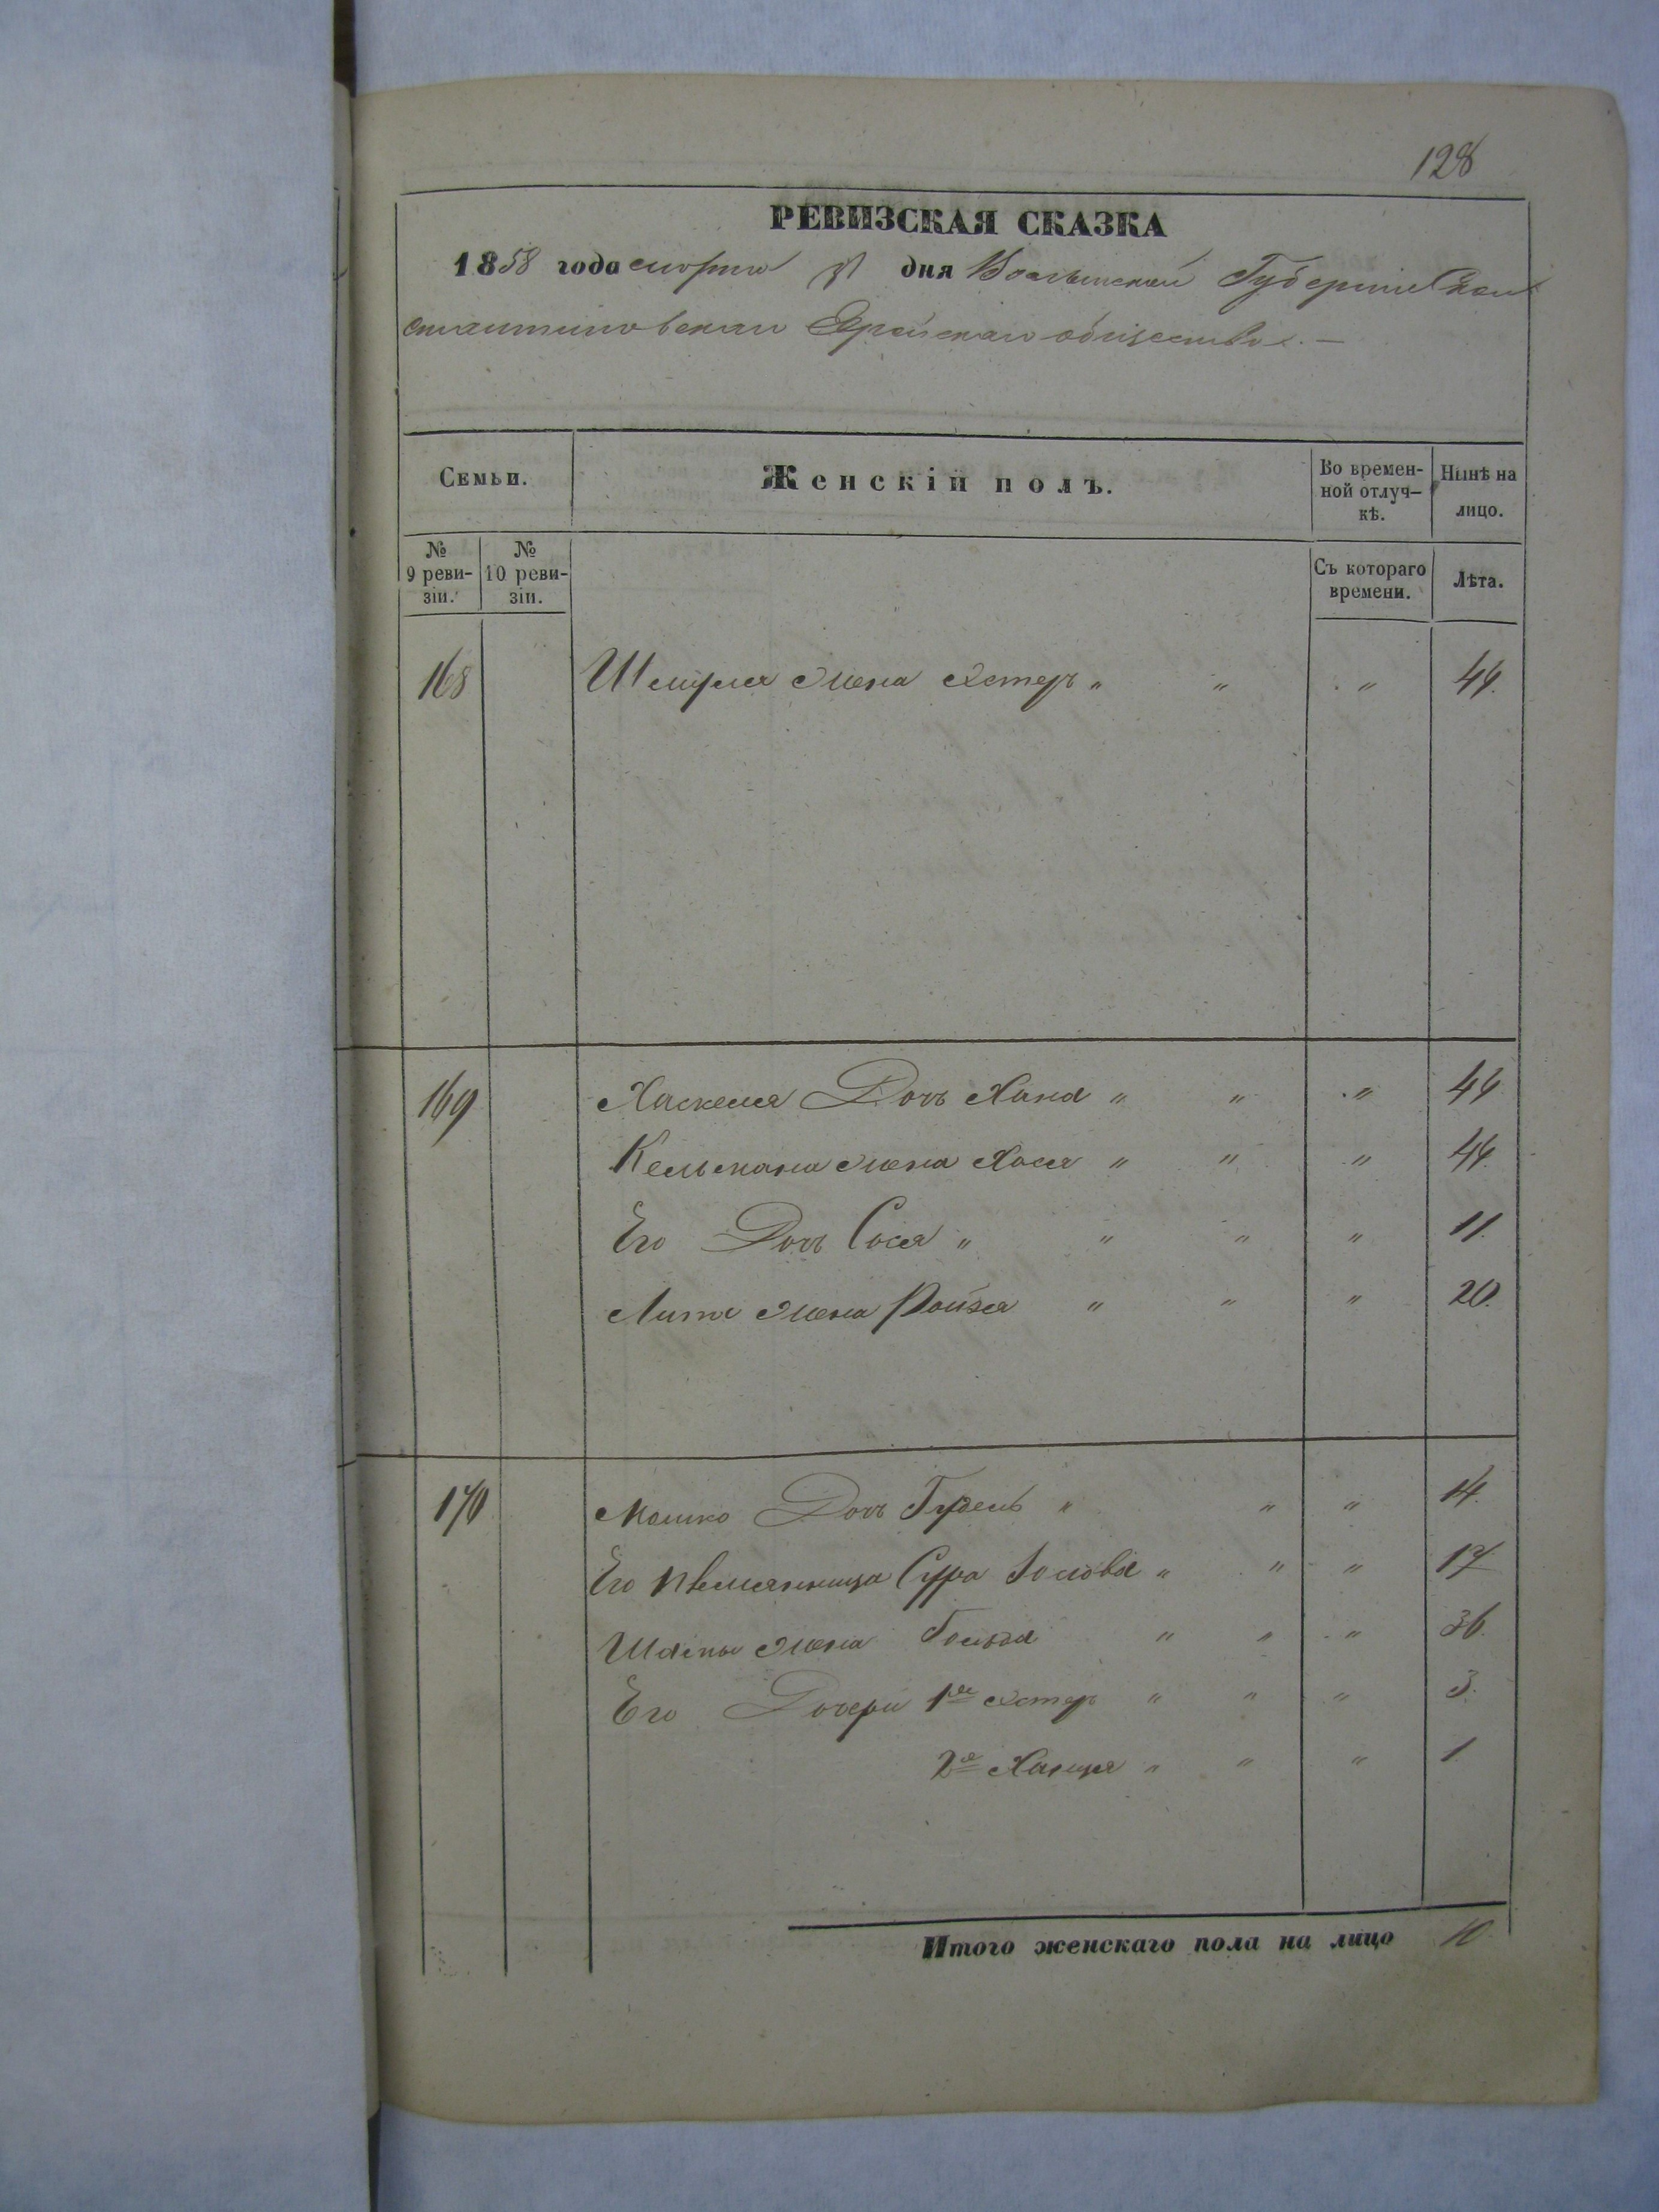 128
РЕВИЗСКАЯ СКАЗКА
1858 года марта дня Волынской Губерніи Кон
стантиновскаго Еврейскаго общества. —
Семьи.
Женскій полъ.
Во времен-
ной отлуч-
кѣ.
Нынѣ на
лицо.
№
9 реви-
зіи.
№
10 реви-
зіи.
Съ котораго
времени.
Лѣта.
168 жена Эстеръ " " " 44.
169 Хаскеля Дочь Хана " " " 44
Кельмана жена Хася " " " 44.
Его Дочь Сося " " " " 11.
жена Ройзя " " " 20.
170 Мошко Дочь Гудель " " " 14.
Его племянница Сура " " " 17
жена Гольда " " " 36.
Его Дочери 1я Эстеръ " " " 3.
2я " " " 1.
Итого женскаго пола на лицо 10